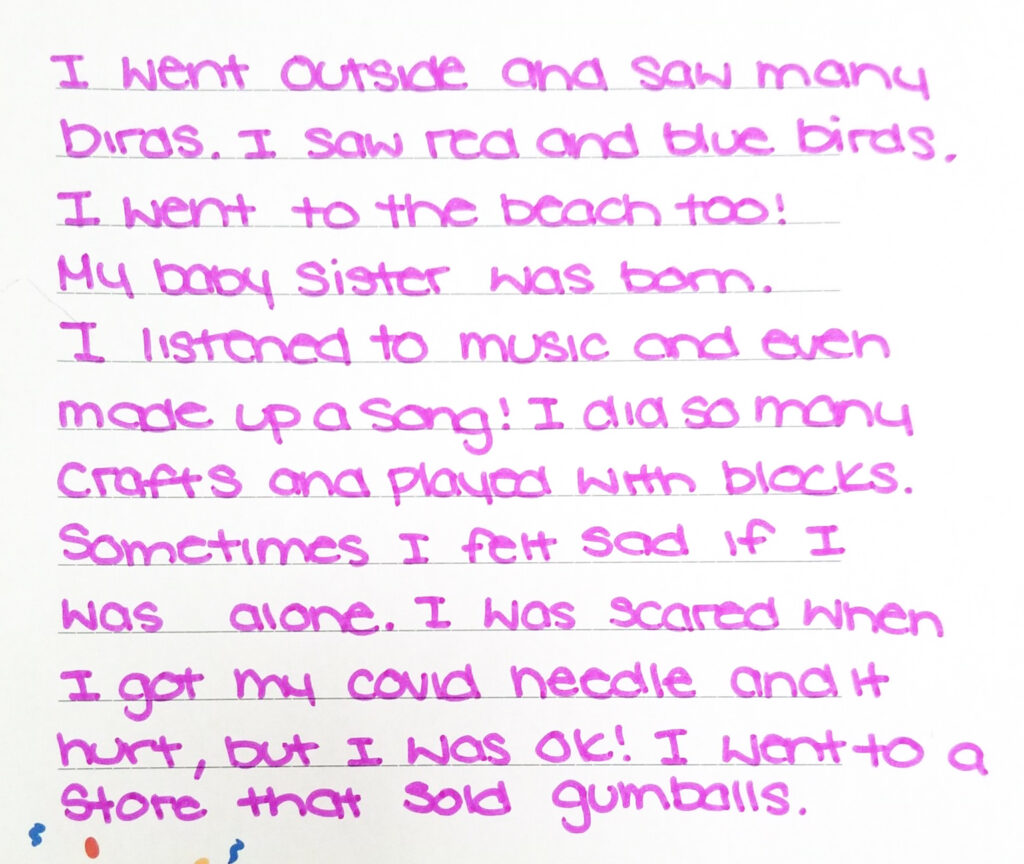 I went outside and saw many
birds. I saw red and blue birds.
I went to the beach too!
My baby sister was born.
I listened to music and even
made up a song! I did so many
crafts and played with blocks.
Sometimes I felt sad if I
was alone. I was scared when
I got my covid needle and it
hurt, but I was ok! I went to a
store that sold gumballs.